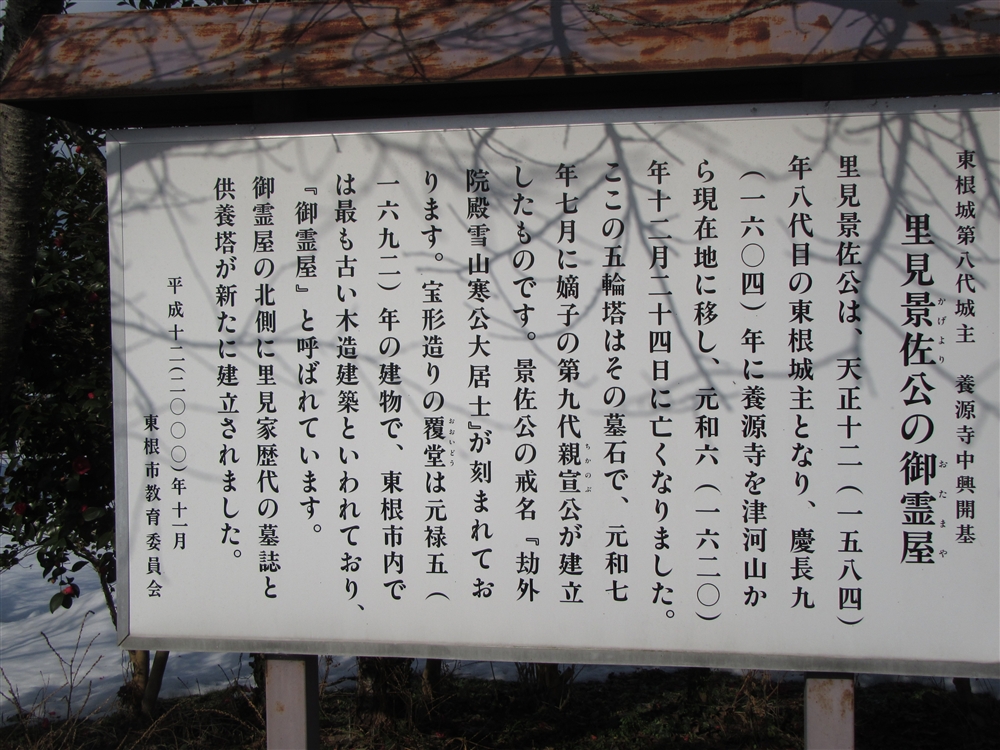 東根城第八代城主 養源寺中興開基
里見景佐公の御霊屋
かげより
おたまや
里見景佐公は、天正十二(一五八四)
年八代目の東根城主となり、慶長九
(一六〇四)年に養源寺を津河山か
ら現在地に移し、元和六(一六二〇)
年十二月二十四日に亡くなりました。
ここの五輪塔はその墓石で、元和七
年七月に嫡子の第九代親宣公が建立
ちかのぶ
したものです。景佐公の戒名『劫外
院殿雪山寒公大居士』が刻まれてお
ります。宝形造りの覆堂は元禄五(
おおいどう
一六九二)年の建物で、東根市内で
は最も古い木造建築といわれており、
『御霊屋』と呼ばれています。
御霊屋の北側に里見家歴代の墓誌と
供養塔が新たに建立されました。
平成十二(二〇〇〇)年十一月
東根市教育委員会